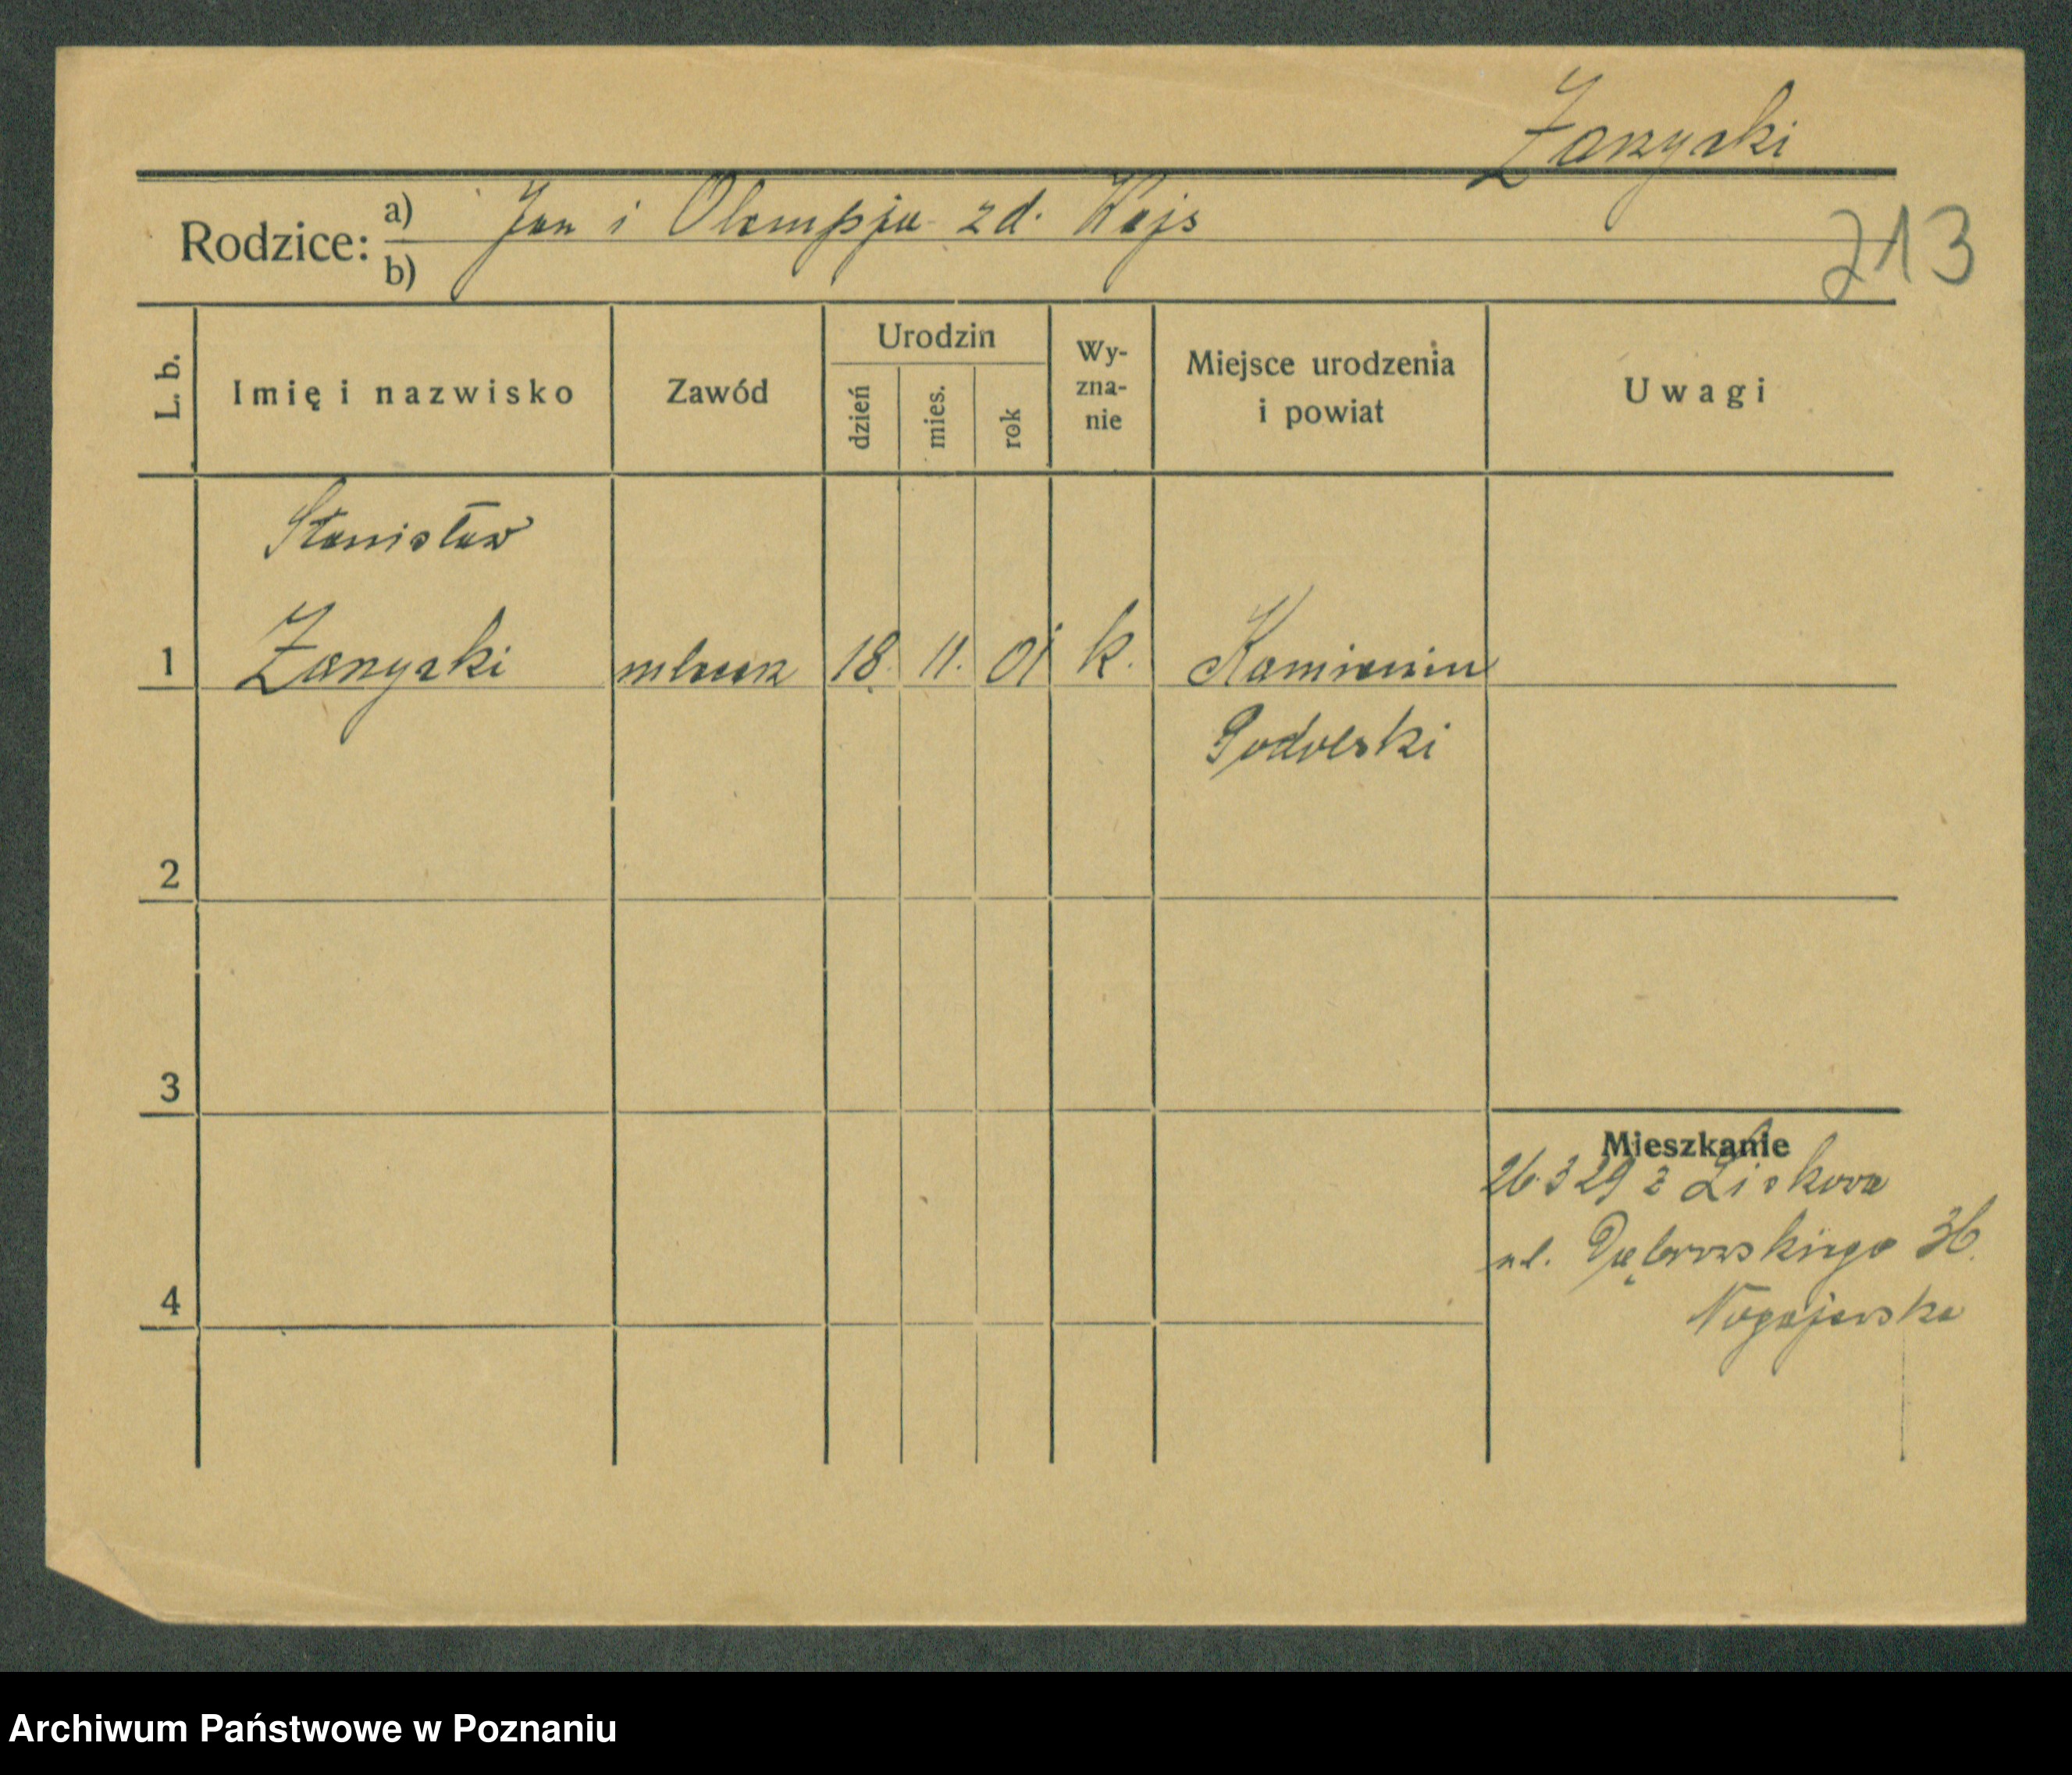 Zanyski
Rodzice: a) Jan i Olempja zd. Wajs
b)
213
L. b.
Imię i nazwisko
Zawód
Urodzin
dzień
mies.
rok
Wy-
zna-
nie
Miejsce urodzenia
i powiat
Uwagi
Stanisław
1 Zanyski 18. 11. 01 k. Kamieniec
Podolski
2
3
Mieszkanie
26.3 29 z Liskowa
ul. Dąbrowskiego 36.
Nogajewska
4
Archiwum Państwowe w Poznaniu